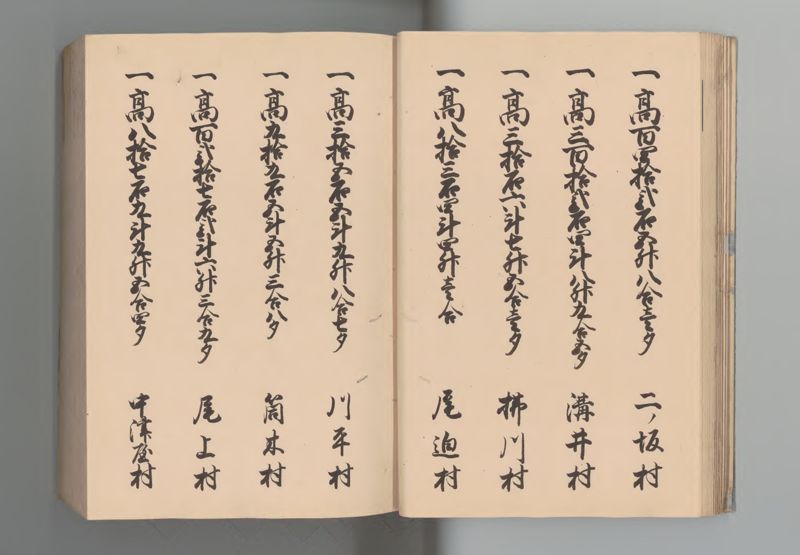 一高百四拾弐石五升八合壱夕 二ノ坂村
一高三百拾弐石四斗八升九合五夕 溝井村
一高三拾石六斗七升五合壱夕 梼川村
一高八拾三石四斗四升壱合 尾迫村
一高三拾五石五斗九升八合七夕 川平村
一高九拾九石五斗五升三合八夕 筒木村
一高百弐拾七石弐斗六升三合九夕 尾上村
一高八拾七石九斗九升五合四夕 中津屋村